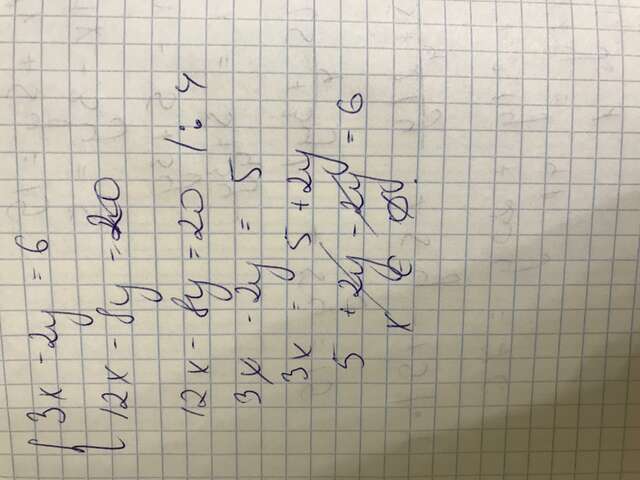 3x - 2y = 6
12x - 8y = 20
12x - 8y = 20 | : 4
3x - 2y = 5
3x = 5 + 2y
5 + 2y - 2y = 6
x ∈ ∅